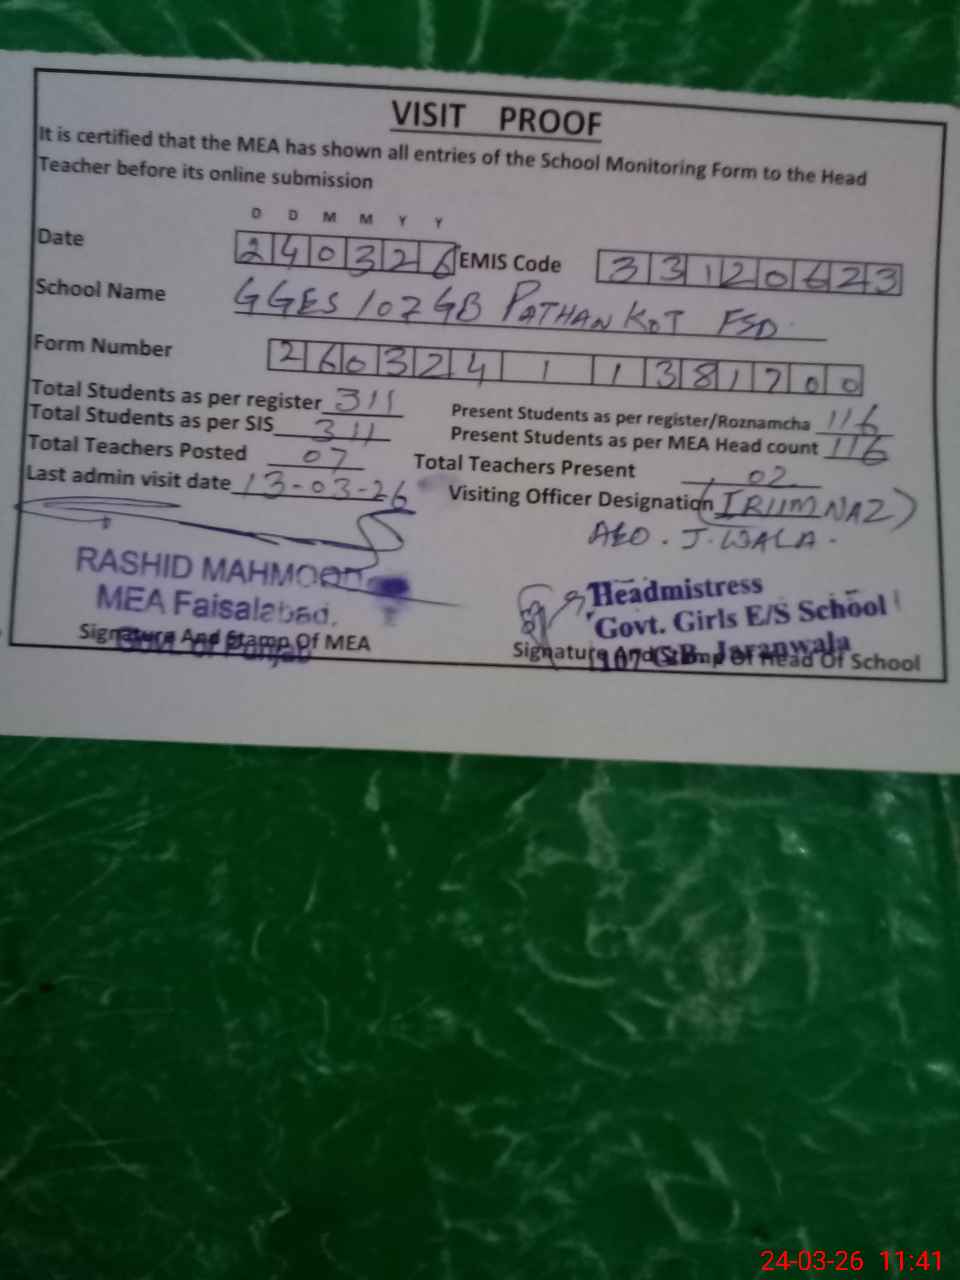 VISIT PROOF
It is certified that the MEA has shown all entries of the School Monitoring Form to the Head
Teacher before its online submission
D D M M Y Y
Date 240326 EMIS Code 33120623
School Name GGES 107 GB PATHAN KOT FSD.
Form Number 260324 1 1381700
Total Students as per register 311 Present Students as per register/Roznamcha 116
Total Students as per SIS 311 Present Students as per MEA Head count 116
Total Teachers Posted 07 Total Teachers Present 02
Last admin visit date 13-03-26 Visiting Officer Designation (IRUM NAZ)
AEO. J.WALA.
RASHID MAHMOOD
MEA Faisalabad.
Govt. of Punjab
Signature And Stamp Of MEA
Headmistress
Govt. Girls E/S School
107 G.B. Jaranwala
Signature And Stamp Of Head Of School
24-03-26 11:41